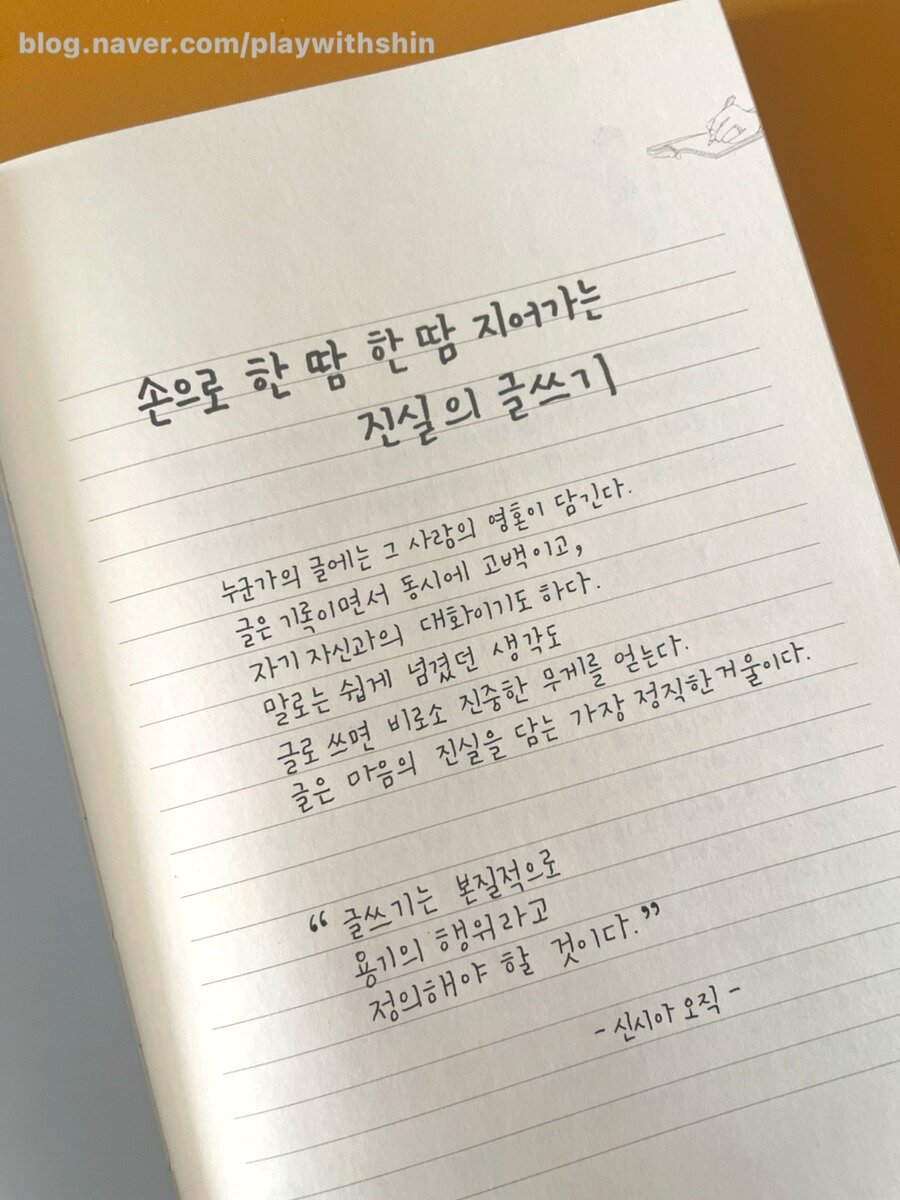 blog.naver.com/playwithshin
손으로 한 땀 한 땀 지어가는
진실의 글쓰기
누군가의 글에는 그 사람의 영혼이 담긴다.
글은 기록이면서 동시에 고백이고,
자기 자신과의 대화이기도 하다.
말로는 쉽게 넘겼던 생각도
글로 쓰면 비로소 진중한 무게를 얻는다.
글은 마음의 진실을 담는 가장 정직한 거울이다.
“ 글쓰기는 본질적으로
용기의 행위라고
정의해야 할 것이다.”
- 신시아 오직 -